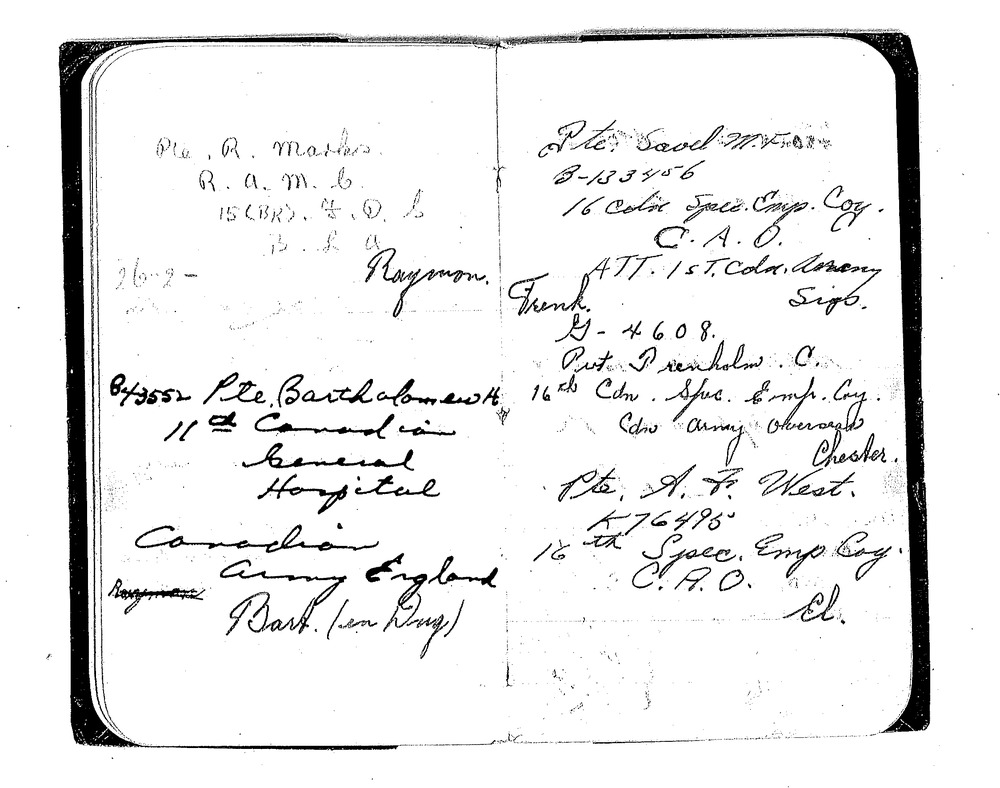 Pte. R. Marks.
R. A. M. C.
15 (BR). F. D. S
B. L. A.
26-2-
Raymon.
B43552 Pte. Bartholomew H
11th Canadian
General
Hospital
Canadian
Army England
Raymon
Bart. (en Dug)
Pte. Savel M.F.
B-133456
16 Cdn Spec. Emp. Coy.
C. A. O.
ATT. 1sT. Cdn. Army
Sigs.
Frenk.
G-4608.
Pvt. Trenholm. C.
16th Cdn. Spec. Emp. Coy.
Cdn Army Overseas
Chester.
Pte. A. F. West.
K76495
16th Spec. Emp Coy.
C. A. O.
El.